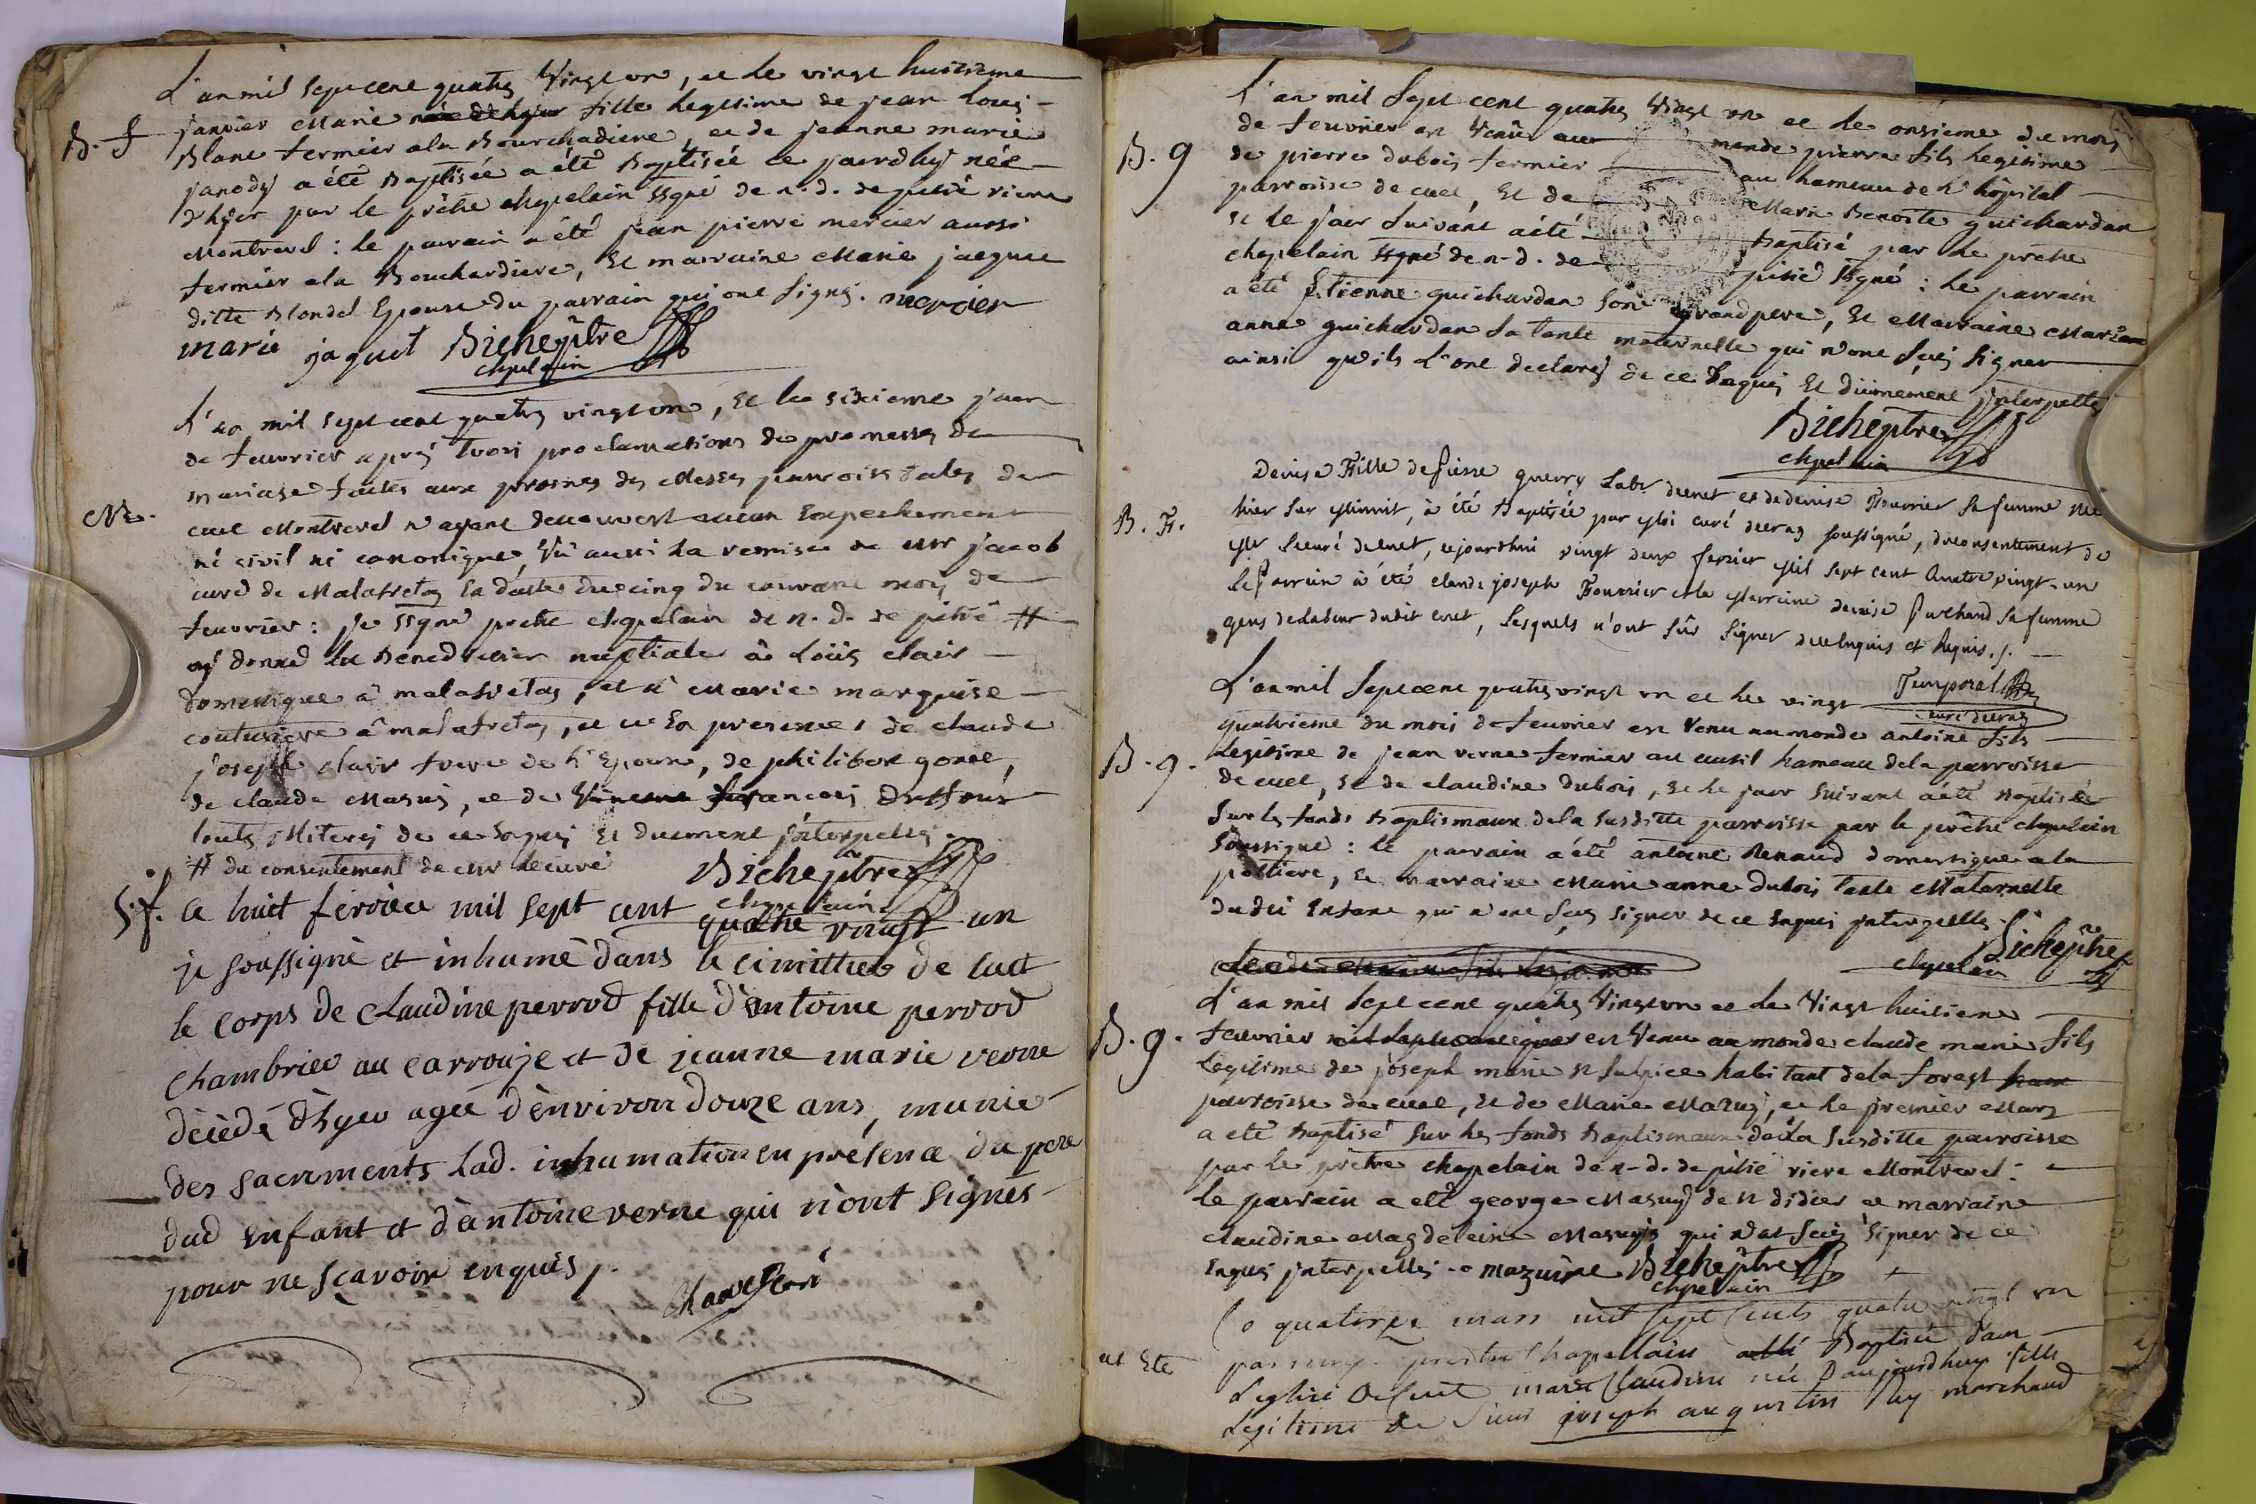 L'an mil sept cent quatre vingt un, et le vingt huitième
B. f
janvier Marie née d'hyer fille legitime de jean Louis
Blanc fermier a la Bourchadiere, et de jeanne marie
janody a été Baptisée a été Baptisée ce jourdhuy née
d'hyer par le prêtre chapelain ssgné de n. d. de pitié riere
Montrevel : le parrain a été jean pierre mercier aussi
fermier a la Bouchardiere, et marraine Marie jaque
ditte Blondel Epouse du parrain qui ont signés. mercier
marie jaquet Bicheptre
chpelain
L'an mil sept cent quatre vingt un, et le sixieme jour
de feuvrier aprés trois proclamations de promesses de
mariage faites aux prosnes des Messes parroissiales de
M.
cuet Montrevel n'ayant decouvert aucun Empechement
ni civil ni canonique, Vû aussi la remise de Mr jacob
curé de Malafretaz En datte du cinq du courant mois de
feuvrier : je ssgné prêtre chapelain de n. d. de pitié #
ay donné la Benediction nuptiale à Loüis clair
domestique â malafretaz, et â Marie marguise
couturiere â malafretaz, et ce En presence de claude
joseph clair frere de l'Epoux, de philibert gonet,
de claude Masuy, et de Vincent francois Duffour
touts Illiterés de ce Enquis et duement jnterpellés
# du consentement de Mr le curé Bicheptre
chapelain
S. f.
ce huit février mil sept cent quatre vingt un
je soussigné et inhumé dans le cimittiere de cuet
le corps de claudine perrod fille d'Entoine perrod
chambrier au carrouje et de jeanne marie verne
décédé d'hyer agée d'environ douze ans, munie
des sacrements Lad. inhumation en présence du pere
dud Enfant et d'entoine verne qui n'ont signés
pour ne sçavoir enquis /.
L'an mil sept cent quatre Vingt un et le onsieme du mois
B. g
de feuvrier est Venû au monde pierre fils legitime
de pierre dubois fermier au hameau de L'hôpital
parroisse de cuet, Et de Marie Benoite guichardan
et le jour suivant a été baptisé par le prêtre
chapelain ssgné de n-d. de pitié ssgné : le parrain
a été Etienne guichardan son grand pere, Et Marraine Marie
anne guichardan sa tante maternelle qui n'ont sçus signer
ainsi qu'ils L'ont declarés de ce Enquis Et düement jnterpellés
Bicheptre
chpelain
B. F.
Denise Fille de Pierre Guerry Labr. decuet et de denise Fournier sa femme née
hier sur Minuit, à été Baptisée par Moi curé detraz soussigné, du consentement de
Mr Lecuré decuet, cejourdhui vingt deux fevrier Mil sept cent Quatre vingt-un
Le Parrain à été claude joseph Fournier et la Marraine denise Puthaud sa femme
gens delabeur dudit cuet, Lesquels n'ont sûs signer deeEnquis et Requis./.
Temporal
L'an mil sept cent quatre vingt un et le vingt
B. g.
quatrieme du mois de feuvrier est venu au monde antoine fils
Legitime de jean verne fermier au curtil hameau de la parroisse
de cuet, et de claudine dubois, et le jour suivant a été Baptisé
sur les fonds Baptismaux de la susditte parroisse par le prêtre chapelain
soussigné : le parrain a été antoine Renaud domestique a la
potiere, Et marraine Marie anne dubois tante Maternelle
dudit Enfant qui n'ont sçus signer de ce Enquis jnterpellés
Bicheptre
chpelain
L'an mil sept cent quatre Vingt un et le Vingt huitieme
B. g.
feuvrier est Venu au monde claude marie fils
legitime de joseph marie st sulpice habitant de la forest
parroisse de cuet, et de Marie Mazuy, et le premier Mars
a eté Baptisé sur les fonds Baptismaux de la susditte parroisse
par le prêtre chapelain de n-d. de pitié riere Montrevel :
le parrain a eté george Masuy de st didier et marraine
claudine Magdeleine Masuyr qui n'at sçus signer de ce
Enquis jnterpellés. mazuire Bicheptre
chpelain
Ce quatorze mars mil sept cents quatre vingt un
at Eté
par nous prestre chapellain Baptisée dans
L'eglise de Cuet marie Claudine née d'aujourdhuy fille
Legitime de sieur joseph augustin marchand